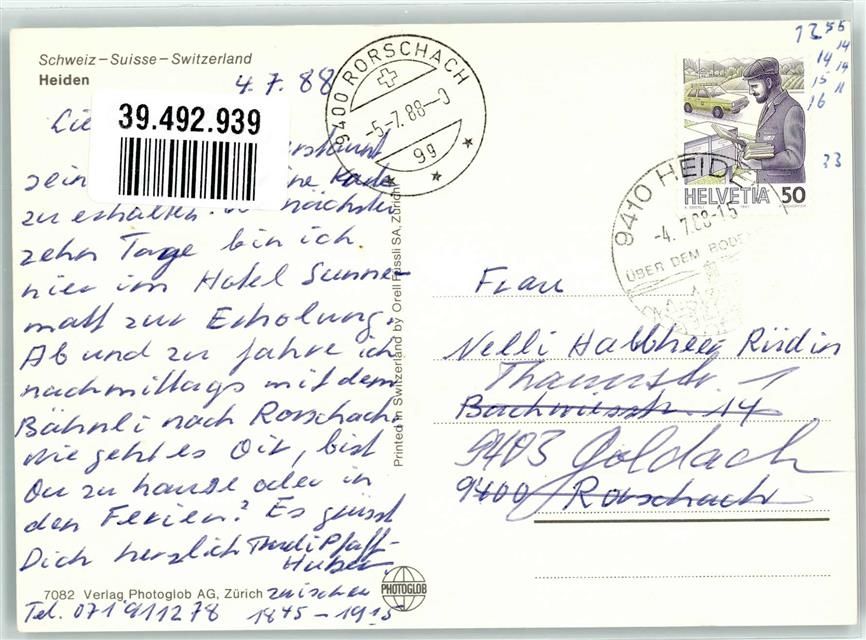 Schweiz – Suisse – Switzerland
Heiden
4. 7. 88
39.492.939
zein
zu erhalten. nächsten
zehn Tage bin ich
hier im Hotel Sunne-
matt zur Erholung.
Ab und zu fahre ich
nachmittags mit dem
Bähnli nach Rorschach.
wie geht es Dir, bist
Du zu hause oder in
den Ferien? Es grüsst
Dich herzlich Trudi Pfaff-
Huber
7082 Verlag Photoglob AG, Zürich
zwischen
Tel. 071 911278 1845 – 1915
Printed in Switzerland by Orell Füssli SA, Zürich
PHOTOGLOB
9400 RORSCHACH
-5.-7.88-0
99
HELVETIA 50
9410 HEID
-4.7.88-15
ÜBER DEM BODEN
1255
14 14
15 11
16
23
Frau
Nelli Halbheer Rüdin
1
Bachwiesstr. 14
9403 Goldach
9400 Rorschach